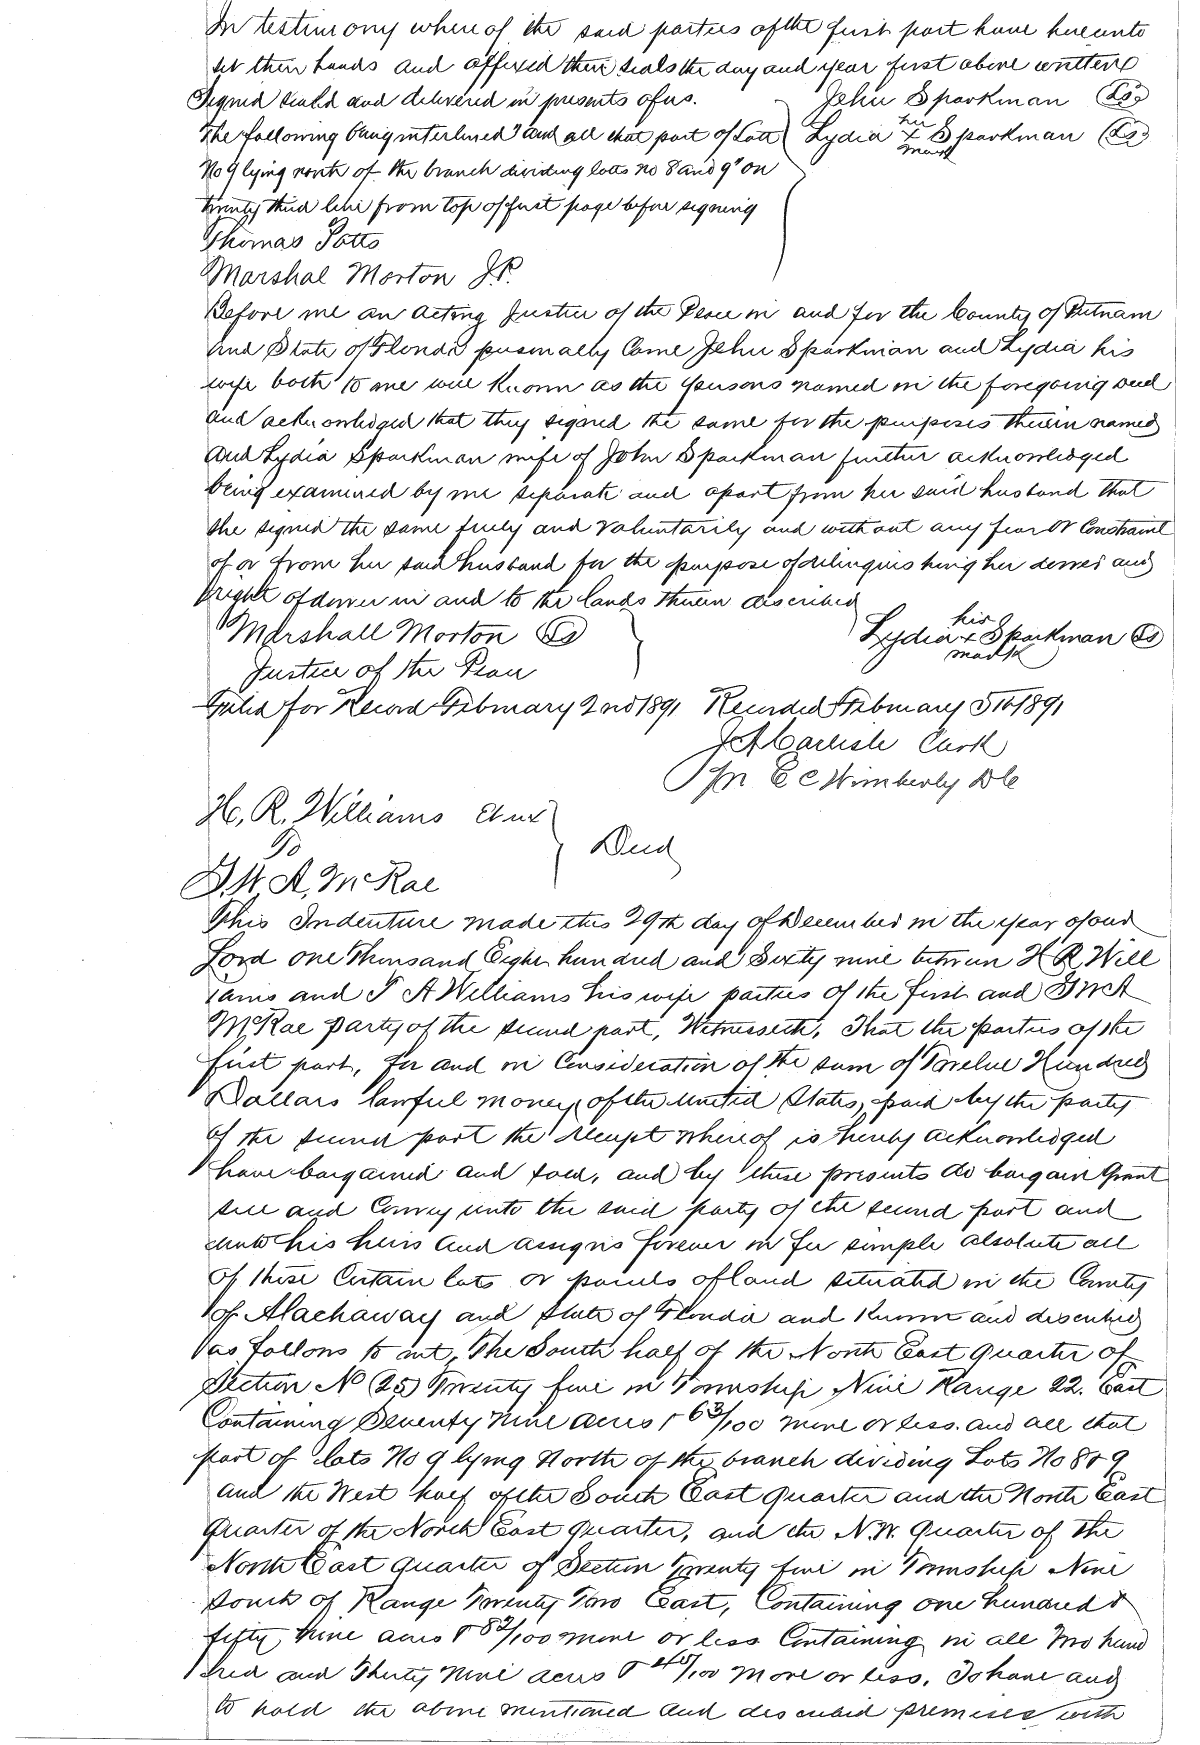 In testimony where of the said parties of the first part have hereunto
set their hands and affixed their seals the day and year first above written
Signed seald and delivered in presents of us. John Sparkman (LS)
The following being interlined "and all that part of Lott Lydia her x mark Sparkman (LS)
No 9 lying north of the branch dividing lotts no 8 and 9" on
twenty third line from top of first page before signing
Thomas Potts
Marshal Morton J.P.
Before me an acting Justice of the Peace in and for the County of Putnam
and State of Florida personally came John Sparkman and Lydia his
wife both to me well known as the persons named in the foregoing deed
and acknowledged that they signed the same for the purposes therein named
and Lydia Sparkman wife of John Sparkman further acknowledged
being examined by me separate and apart from her said husband that
she signed the same freely and voluntarily and without any fear or constraint
of or from her said husband for the purpose of relinquishing her dower and
right of dower in and to the lands therein described
Marshall Morton (LS) Lydia his x mark Sparkman (LS)
Justice of the Peace
Filed for Record February 2nd 1891 Recorded February 5th 1891
J A Carlisle Clerk
Pr E C Wimberly D C
H. R. Williams et ux
To Deed
G. W. A. McRae
This Indenture made this 29th day of December in the year of our
Lord one Thousand Eight hundred and Sixty nine between H R Will
iams and T A Williams his wife parties of the first and G W A
McRae party of the second part, Witnesseth, That the parties of the
first part, for and in Consideration of the sum of Twelve Hundred
Dollars lawful money of the United States, paid by the party
of the second part the receipt whereof is hereby acknowledged
have bargained and sold, and by these presents do bargain Grant
sell and Convey unto the said party of the second part and
unto his heirs and assigns forever in fee simple absolute all
of those Certain lots or parcels of land situated in the County
of Alachaway and state of Florida and Known and described
as follows to wit, The South half of the North East Quarter of
Section No (25) Twenty five in Township Nine Range 22. East
Containing Seventy nine acres & 63/100 more or less. and all that
part of lots No 9 lying North of the branch dividing Lots No 8 & 9
and the West half of the South East Quarter and the North East
Quarter of the North East Quarter, and the N.W. Quarter of the
North East Quarter of Section Twenty five in Township Nine
South of Range Twenty Two East, Containing one hundred &
fifty nine acres & 82/100 more or less Containing in all Two hund
red and Thirty Nine acres & 45/100 more or less, To have and
to hold the above mentioned and described premises with